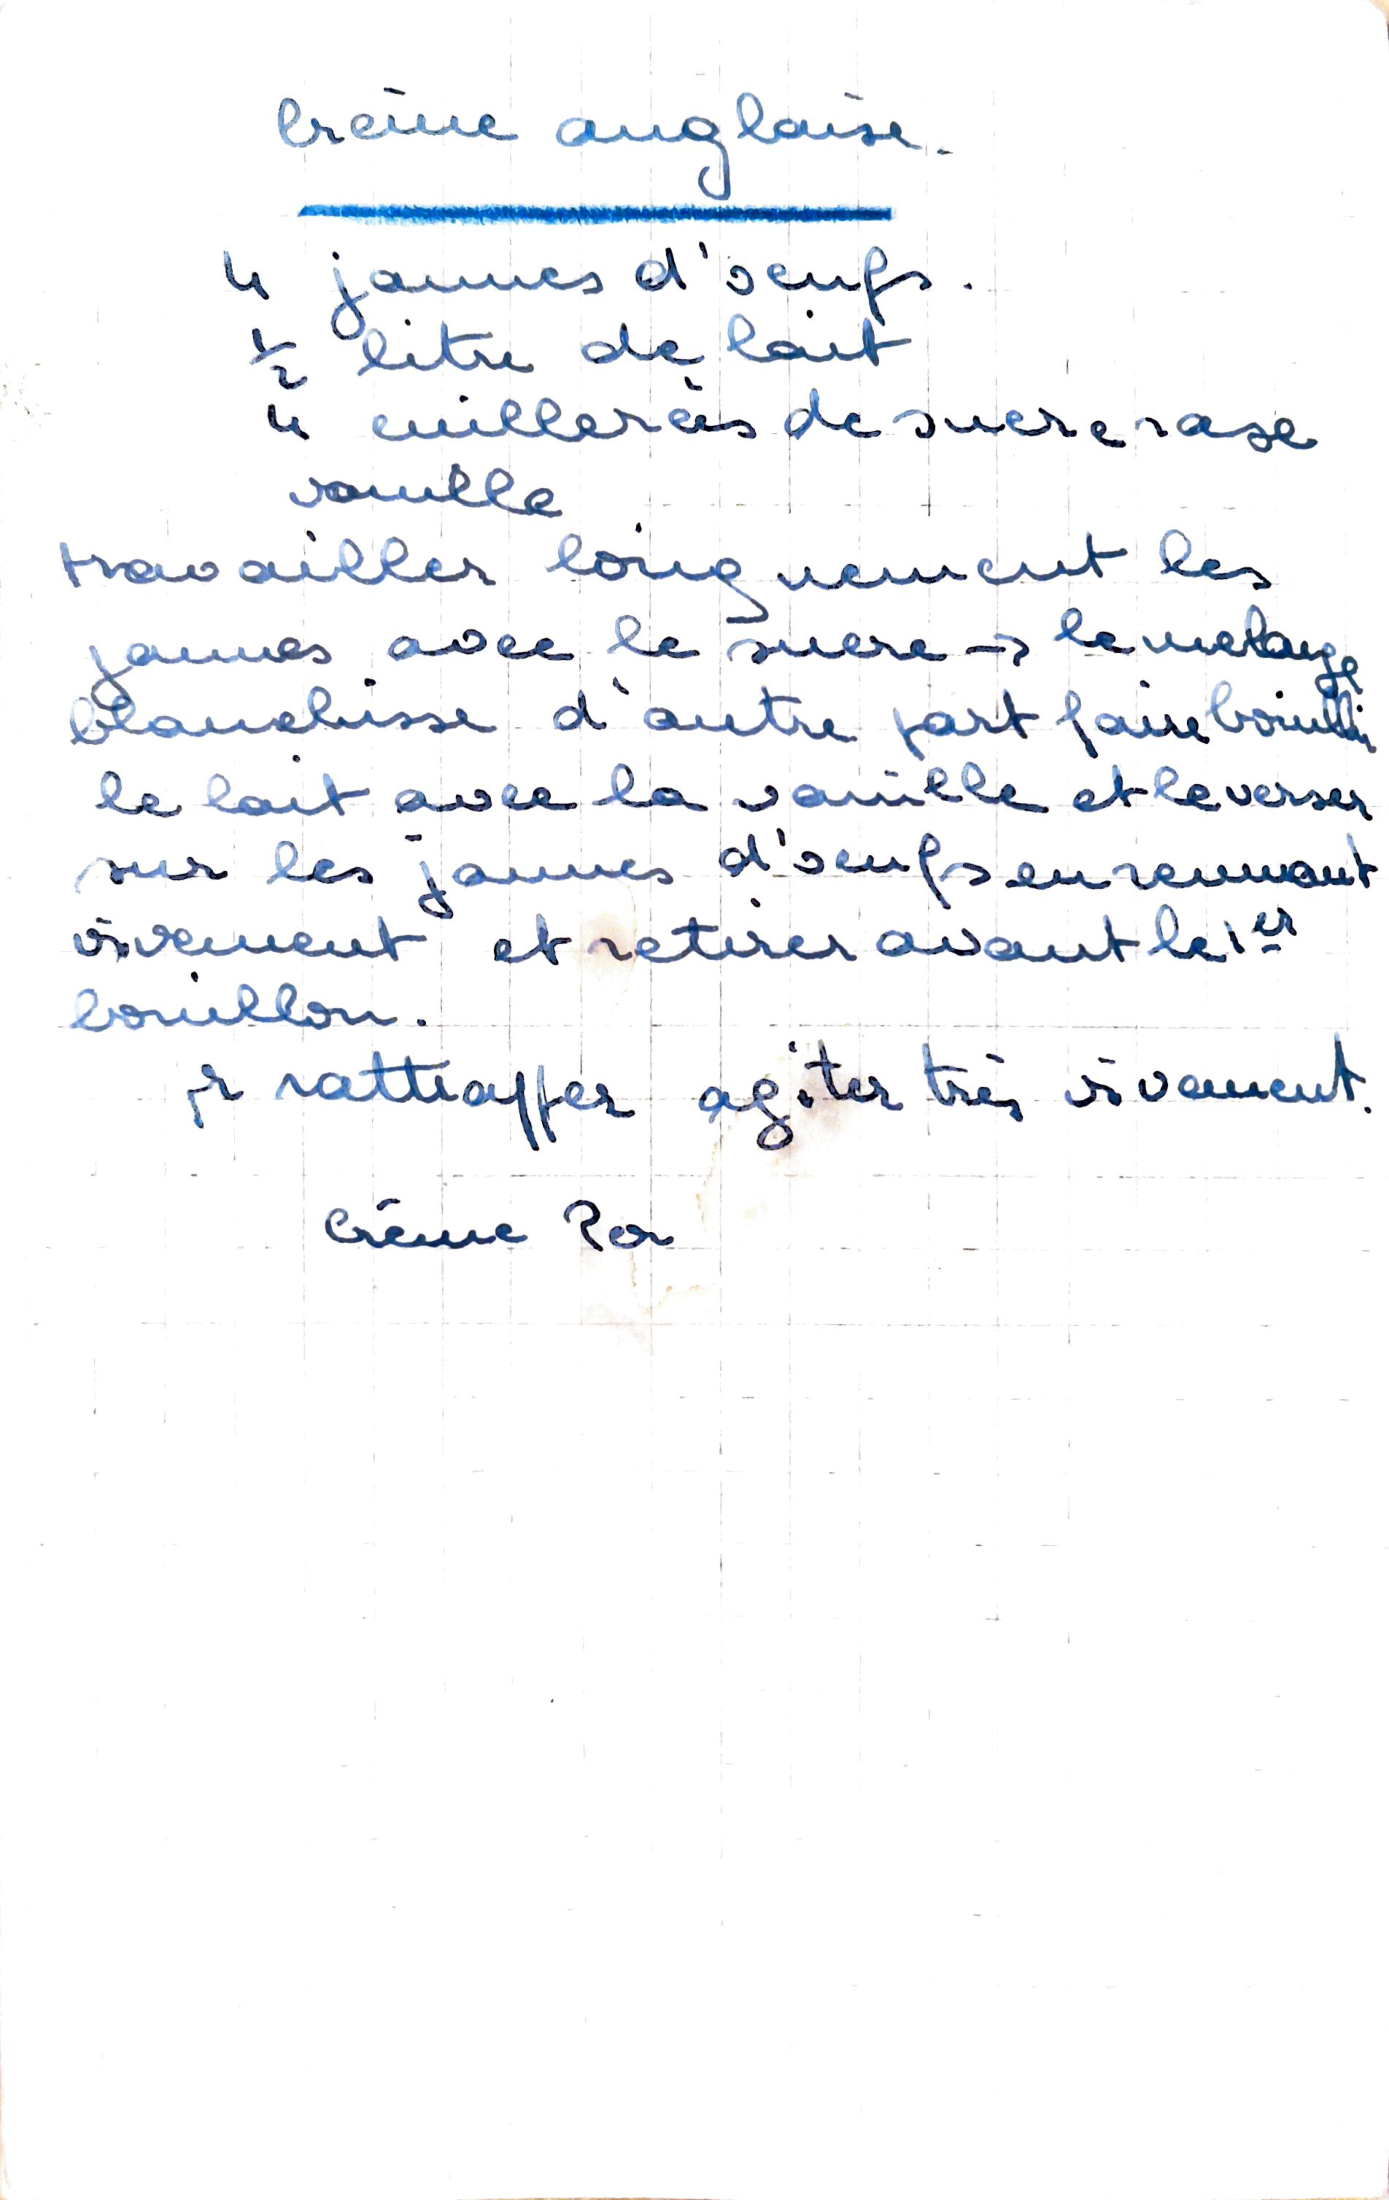 Crème anglaise.
4 jaunes d'oeufs.
1/2 litre de lait
4 cuillerées de sucre rase
vanille
travailler longuement les
jaunes avec le sucre → le melange
blanchisse d'autre part faire bouillir
le lait avec la vanille et le verser
sur les jaunes d'oeufs en remuant
vivement et retirer avant le 1er
bouillon.
pr rattrapper agiter très vivement.
Crème